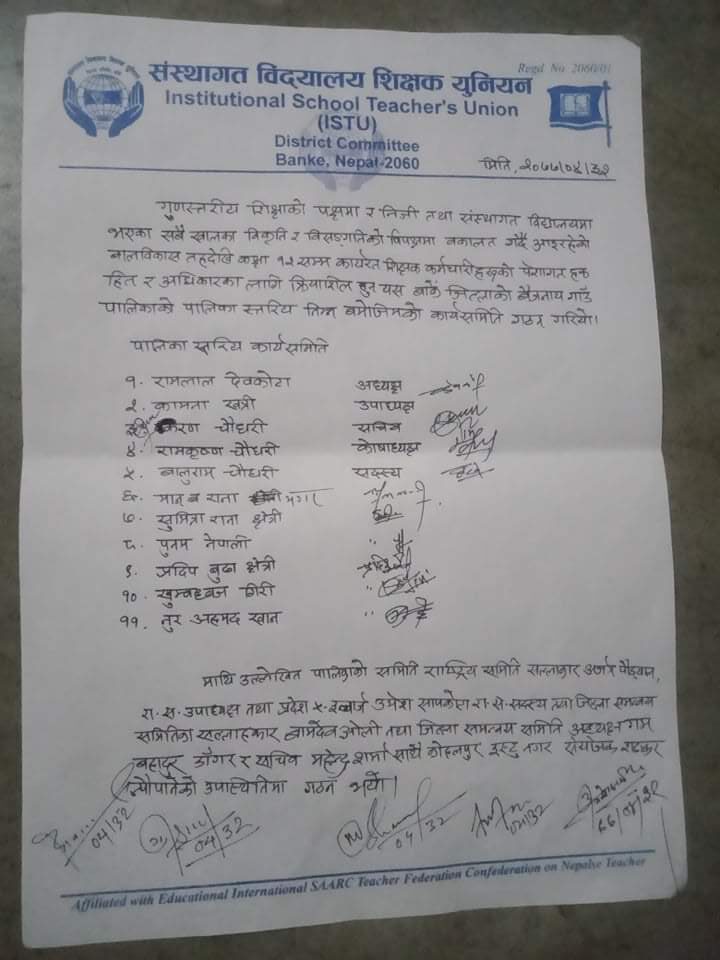 Regd No 2060/01
संस्थागत विद्यालय शिक्षक युनियन
Institutional School Teacher's Union
(ISTU)
District Committee
Banke, Nepal-2060
मिति, २०७७/०४/३२
गुणस्तरीय शिक्षाको पक्षमा र निजी तथा संस्थागत विद्यालयमा
भएका सबै खालका विकृति र विसङ्गतिको विपक्षमा वकालत गर्दै आइरहेको
बालविकास तहदेखि कक्षा १२ सम्म कार्यरत शिक्षक कर्मचारीहरुको पेशागत हक
हित र अधिकारका लागि क्रियाशील हुन यस बाँके जिल्लाको बैजनाथ गाउँ
पालिकाको पालिका स्तरिय निम्न बमोजिमको कार्यसमिति गठन गरियो।
पालिका स्तरिय कार्यसमिति
१. रामलाल देवकोटा अध्यक्ष
२. कामना खत्री उपाध्यक्ष
३. करण चौधरी सचिव
४. रामकृष्ण चौधरी कोषाध्यक्ष
५. बालुराम चौधरी सदस्य
६. मानब राना मगर
७. सुमित्रा राना क्षेत्री
८. पुनम नेपाली "
९. प्रदिप बुढा क्षेत्री
१०. खुमध्वज गिरी "
११. नुर अहमद खान "
माथि उल्लेखित पालिकाको समिति राष्ट्रिय समिति सल्लाहकार
रा.स. उपाध्यक्ष तथा प्रदेश ५ इन्चार्ज उमेश सापकोटा रा.स. सदस्य तथा जिल्ला समन्वय
समितिका सल्लाहकार बामदेव ओली तथा जिल्ला समन्वय समिति अध्यक्ष राम
बहादुर डाँगर र सचिव महेन्द्र शर्मा साथै कोहलपुर इस्टु नगर संयोजक शङ्कर
न्यौपानेको उपास्थितिमा गठन भयो।
04/32
04/32
04/32
04/32
Affiliated with Educational International SAARC Teacher Federation Confederation on Nepalse Teacher